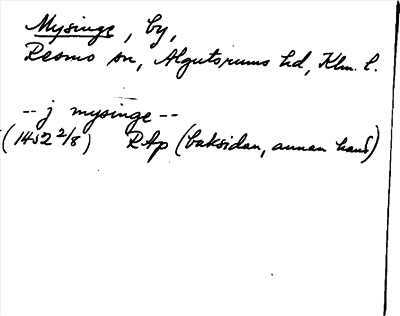 Mysinge, by,
Resmo sn, Algutsrums hd, Klm. l.
-- j mysinge --
(1452 2/8) RAp (baksidan, annan hand)